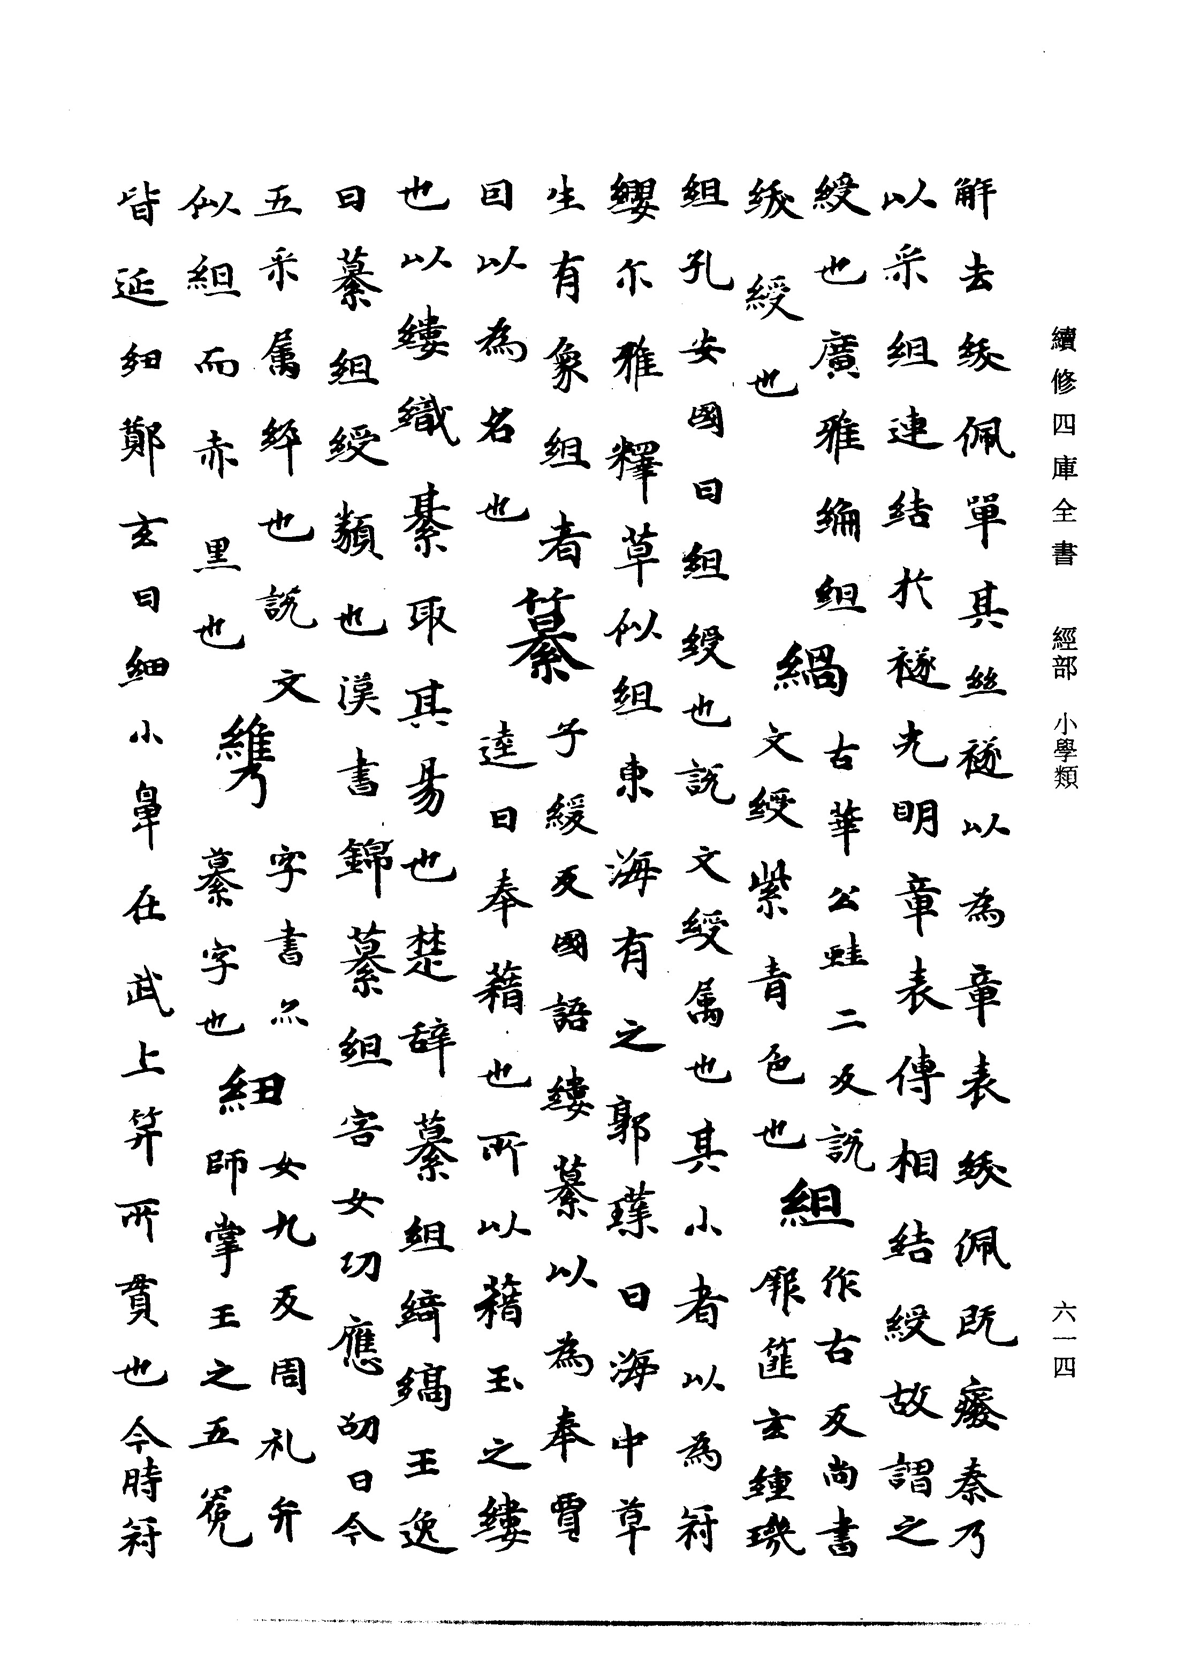 續修四庫全書 經部 小學類
六一四
解去紱佩單其絲襚以為章表紱佩既癈秦乃
以采組連結於襚光明章表傳相結綬故謂之
綬也廣雅綸組
紱綬也
緺
古華公蛙二反説
文綬紫青色也
組
作古反尚書
厥篚玄纁璣
組孔安國曰組綬也説文綬属也其小者以為冠
纓尓雅釋草似組東海有之郭璞曰海中草
生有象組者
因以為名也
纂
子緩反國語縷纂以為奉賈
逵曰奉藉也所以藉玉之縷
也以縷織綦取其易也楚辞纂組綺縞王逸
曰纂組綬類也漢書錦纂組害女功應劭曰今
五采属綷也説文
似組而赤黒也
字書亦
纂字也
紐
女九反周礼弁
師掌王之五冕
皆延紐鄭玄曰紐小鼻在武上笄所貫也今時冠